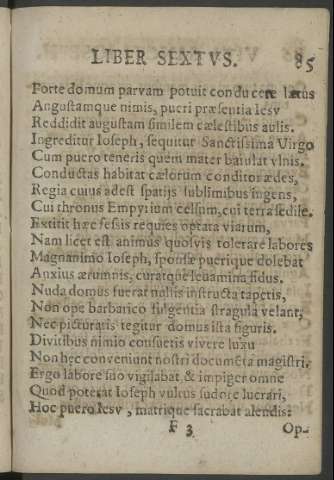 LIBER SEXTVS. 85
Forte domum parvam potuit conducere lætus
Angustamque nimis, pueri præsentia Iesv
Reddidit augustam similem cælestibus aulis.
Ingreditur Ioseph, sequitur Sanctissima Virgo
Cum puero teneris quem mater baiulat vlnis.
Conductas habitat cælorum conditor ædes,
Regia cuius adest spatijs sublimibus ingens,
Cui thronus Empyrium celsum, cui terra sedile.
Extitit hæc fessis requies optata viarum,
Nam licet est animus quosvis tolerare labores
Magnanimo Ioseph, sponsæ puerique dolebat
Anxius ærumnis, curatque levamina fidus.
Nuda domus fuerat nullis instructa tapetis,
Non ope barbarico fulgentia stragula velant,
Nec picturatis tegitur domus ista figuris.
Divitibus nimio consuetis vivere luxu
Non hęc conveniunt nostri documẽta magistri.
Ergo labore suo vigilabat & impiger omne
Quod poterat Ioseph vultus sudore lucrari,
Hoc puero Iesv, matrique sacrabat alendis:
F 3 Op-